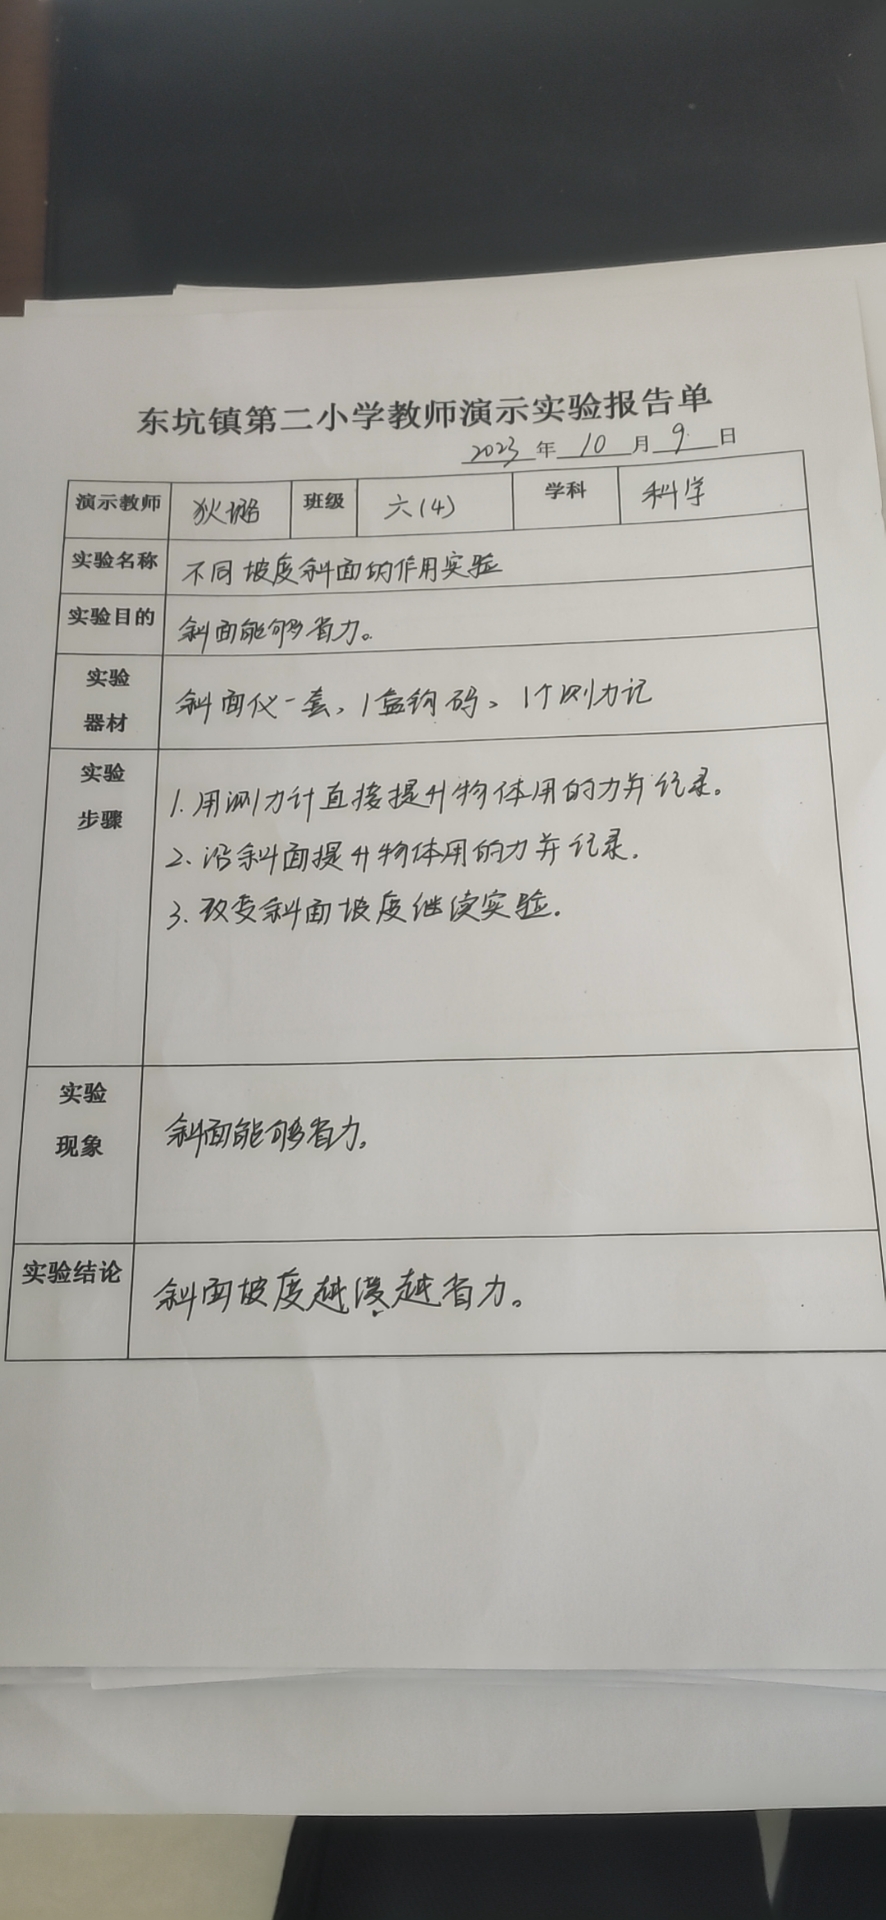 东坑镇第二小学教师演示实验报告单
2023年10月9日
演示教师 狄璐 班级 六(4) 学科 科学
实验名称 不同坡度斜面的作用实验
实验目的 斜面能够省力。
实验器材 斜面仪一套、1盒钩码、1个测力记
实验步骤 1.用测力计直接提升物体用的力并记录。
2.沿斜面提升物体用的力并记录.
3.改变斜面坡度继续实验.
实验现象 斜面能够省力。
实验结论 斜面坡度越缓越省力。